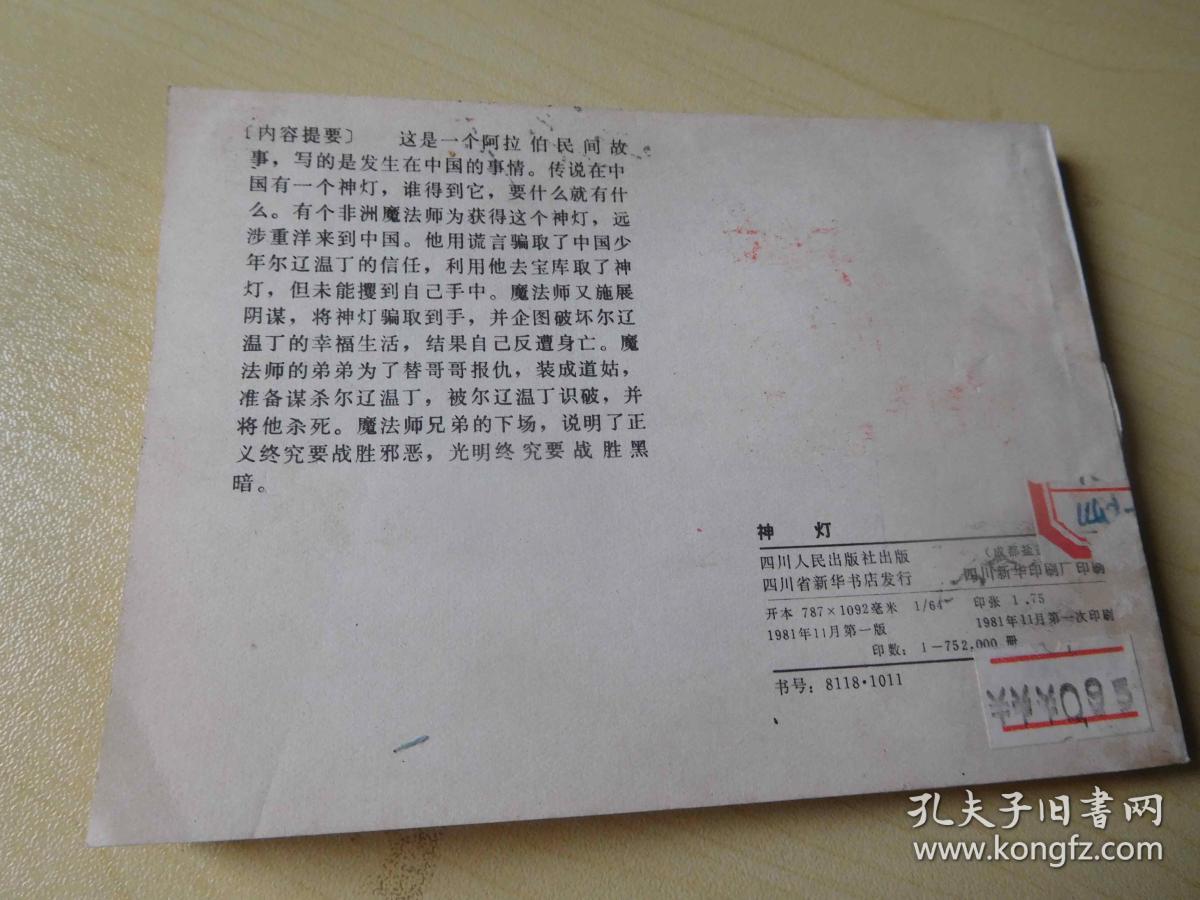 〔内容提要〕 这是一个阿拉伯民间故
事，写的是发生在中国的事情。传说在中
国有一个神灯，谁得到它，要什么就有什
么。有个非洲魔法师为获得这个神灯，远
涉重洋来到中国。他用谎言骗取了中国少
年尔辽温丁的信任，利用他去宝库取了神
灯，但未能攫到自己手中。魔法师又施展
阴谋，将神灯骗取到手，并企图破坏尔辽
温丁的幸福生活，结果自己反遭身亡。魔
法师的弟弟为了替哥哥报仇，装成道姑，
准备谋杀尔辽温丁，被尔辽温丁识破，并
将他杀死。魔法师兄弟的下场，说明了正
义终究要战胜邪恶，光明终究要战胜黑
暗。
神 灯
四川人民出版社出版 （成都盐
四川省新华书店发行 四川新华印刷厂印刷
开本 787×1092毫米 1/64 印张 1.75
1981年11月第一版 1981年11月第一次印刷
印数：1—752,000 册
书号：8118·1011
孔夫子旧书网
www.kongfz.com